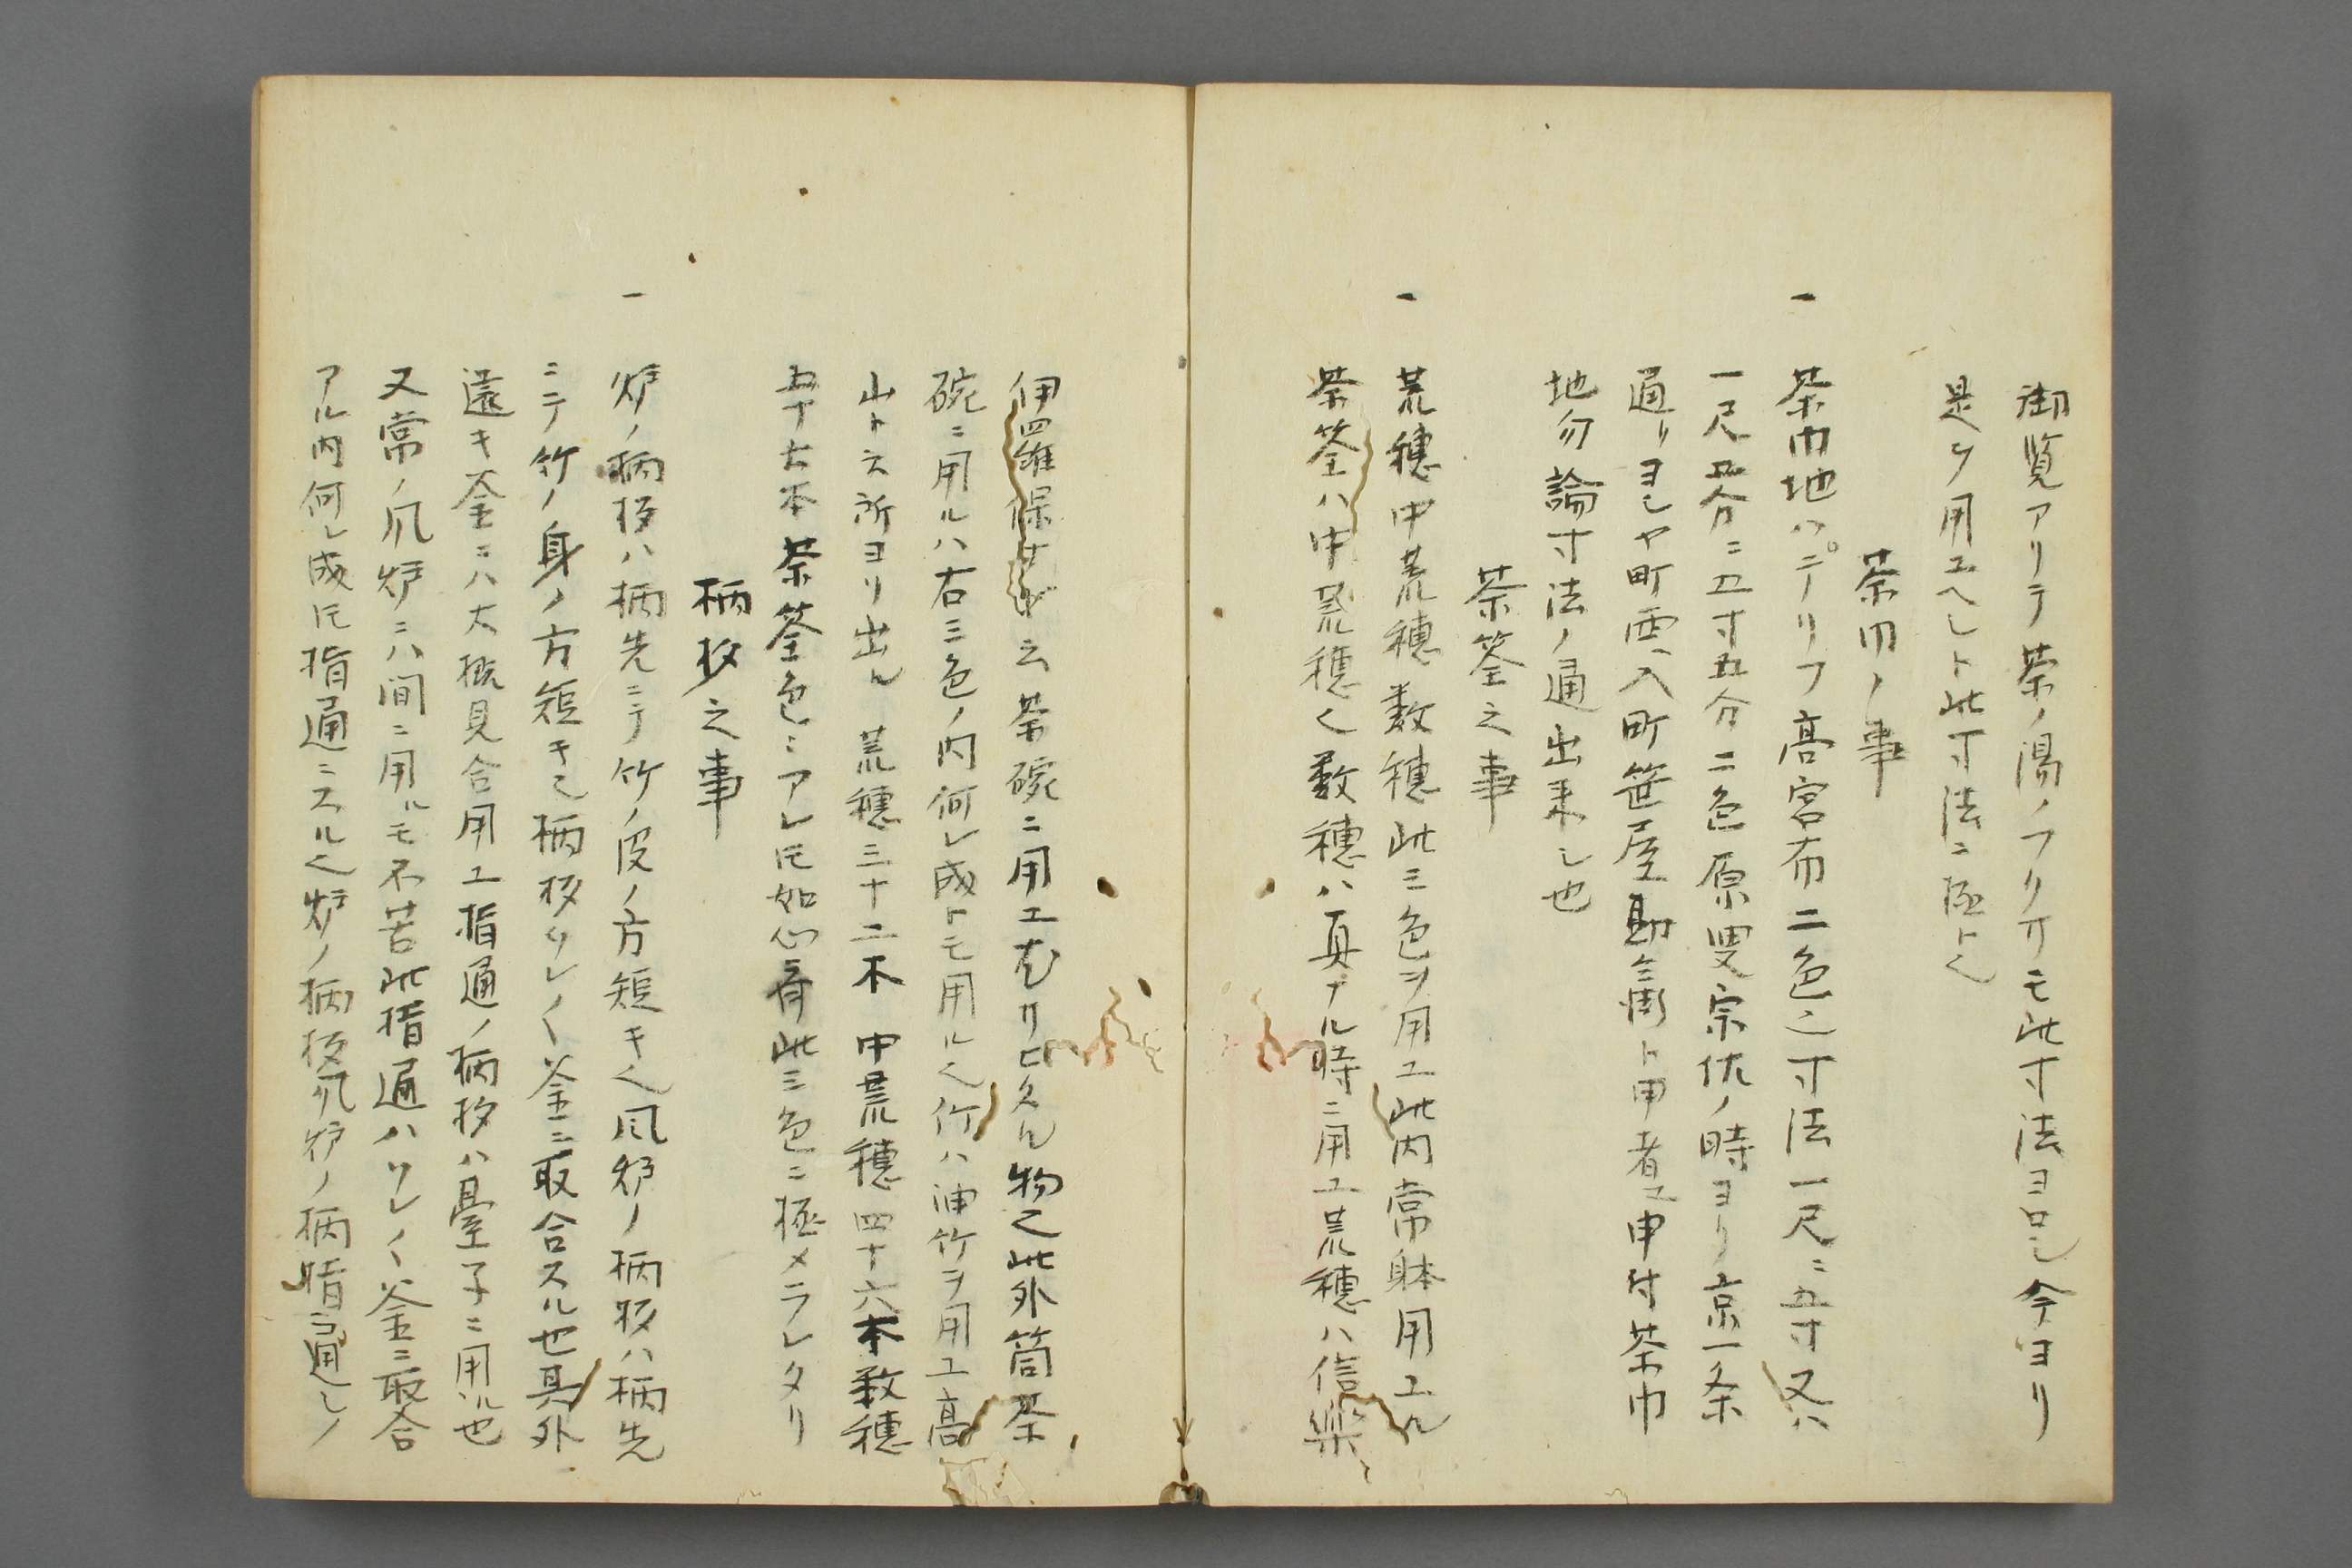 御覧アリテ茶ノ湯ノフリ合モ此寸法ヨロシ今ヨリ
是ヲ用エヘシト此寸法ニ極ト也
茶巾ノ事
一 茶巾地ハ 高宮布二色也寸法一尺ニ五寸又ハ
一尺五分ニ五寸五分二色原叟宗佐ノ時ヨリ京一条
通リヨシヤ町西ヘ入町笹屋勘兵衛ト申者ヱ申付茶巾
地勿論寸法ノ通出来シ也
茶筌之事
一 荒穂中荒穂数穂此三色ヲ用エ此内常躰用エル
茶筌ハ中荒穂也数穂ハ真ナル時ニ用エ荒穂ハ信楽
伊羅保 云茶碗ニ用エ 物也此外筒茶
碗ニ用ルハ右三色ノ内何レ成トモ用ル也竹ハ油竹ヲ用エ高
山ト云所ヨリ出ル 荒穂三十二本 中荒穂四十六本 数穂
本茶筌色ニアレ𪜈如心斎此三色ニ極メラレタリ
柄杓之事
一 炉ノ柄杓ハ柄先ニテ竹ノ皮ノ方短キ也風炉ノ柄杓ハ柄先
ニテ竹ノ身ノ方短キ也柄杓ソレ〱釜ニ取合スル也其外
遠キ釜ニハ大概見合用エ指通ノ柄杓ハ臺子ニ用ル也
又常ノ風炉ニハ間ニ用ルモ不苦此指通ハソレ〱釜ニ取合
アル内何レ成𪜈指通ニスル也炉ノ柄杓風炉ノ柄指通シノ